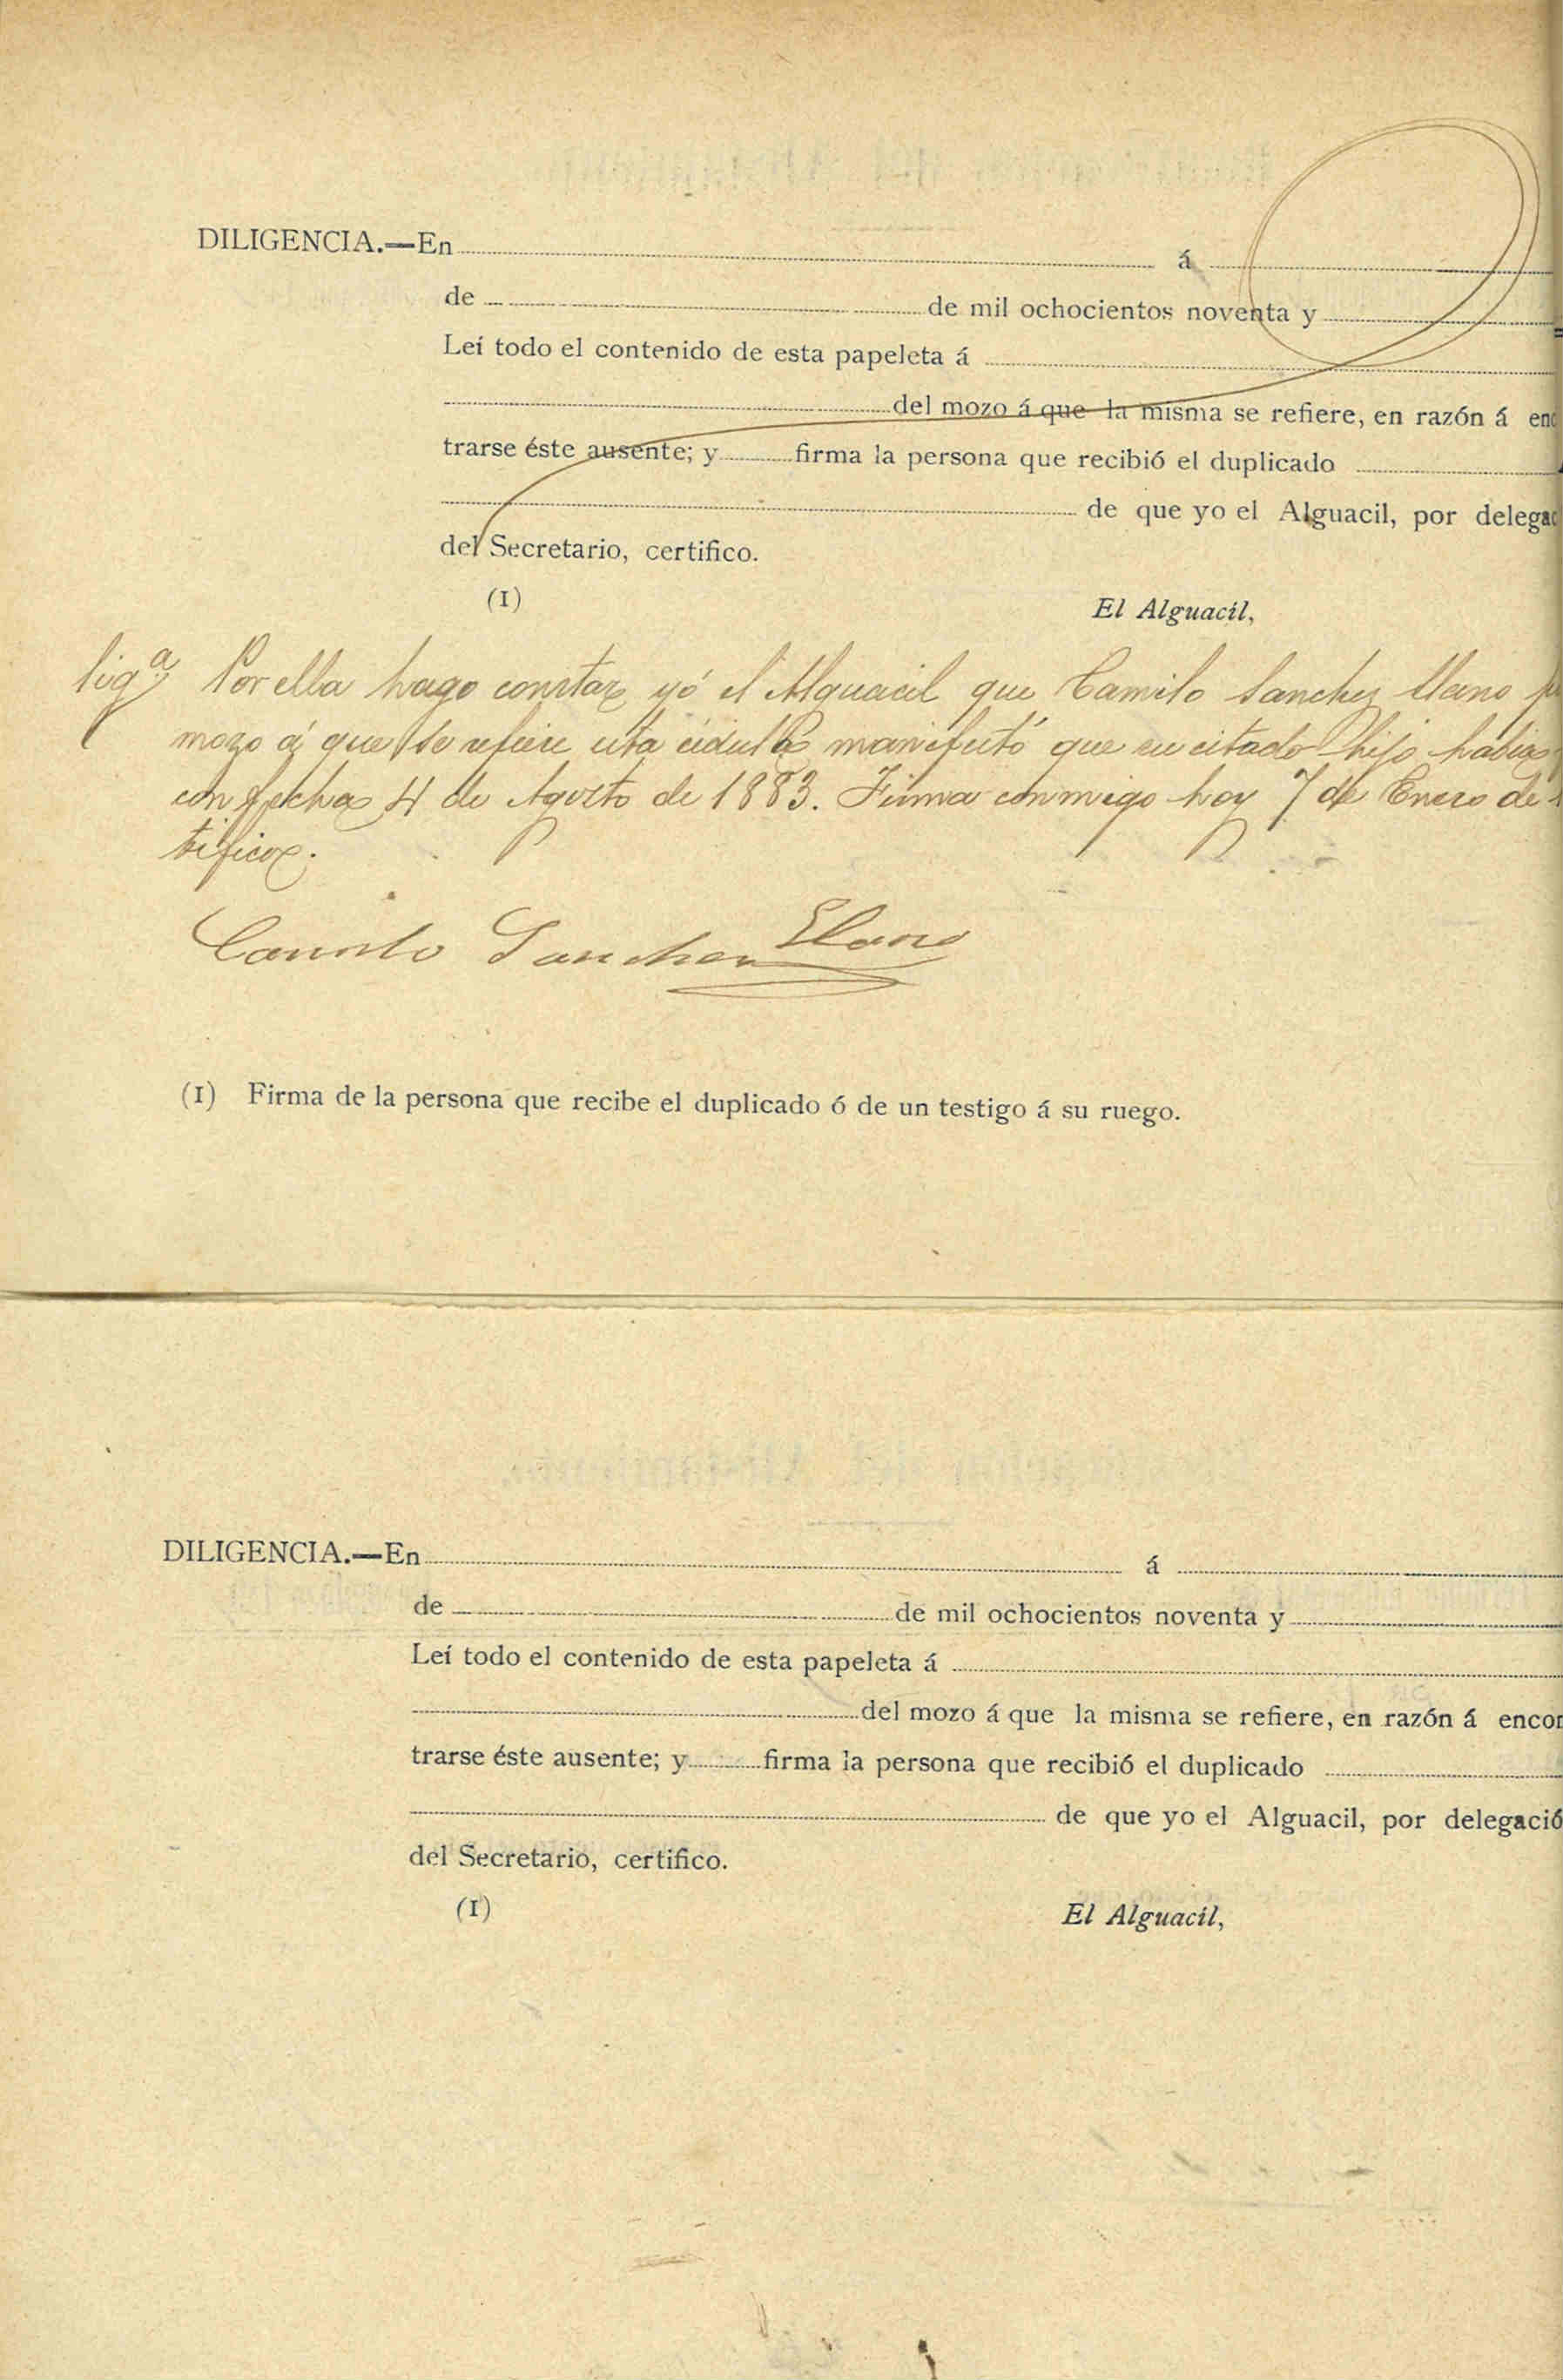 DILIGENCIA.—En á
de de mil ochocientos noventa y
Leí todo el contenido de esta papeleta á
del mozo á que la misma se refiere, en razón á enc
trarse éste ausente; y firma la persona que recibió el duplicado
de que yo el Alguacil, por delegac
del Secretario, certifico.
(1)
El Alguacil,
ligª Por ella hago constar yó el Alguacil que Camilo Sanchez Llano
mozo á que se refiere esta cédula manifestó que su citado hijo habia
con fecha 4 de Agosto de 1883. Firma conmigo hoy 7 de Enero de
tifico.
Camilo Sanchez Llano
(1) Firma de la persona que recibe el duplicado ó de un testigo á su ruego.
DILIGENCIA.—En á
de de mil ochocientos noventa y
Leí todo el contenido de esta papeleta á
del mozo á que la misma se refiere, en razón á encon
trarse éste ausente; y firma la persona que recibió el duplicado
de que yo el Alguacil, por delegació
del Secretario, certifico.
(1)
El Alguacil,